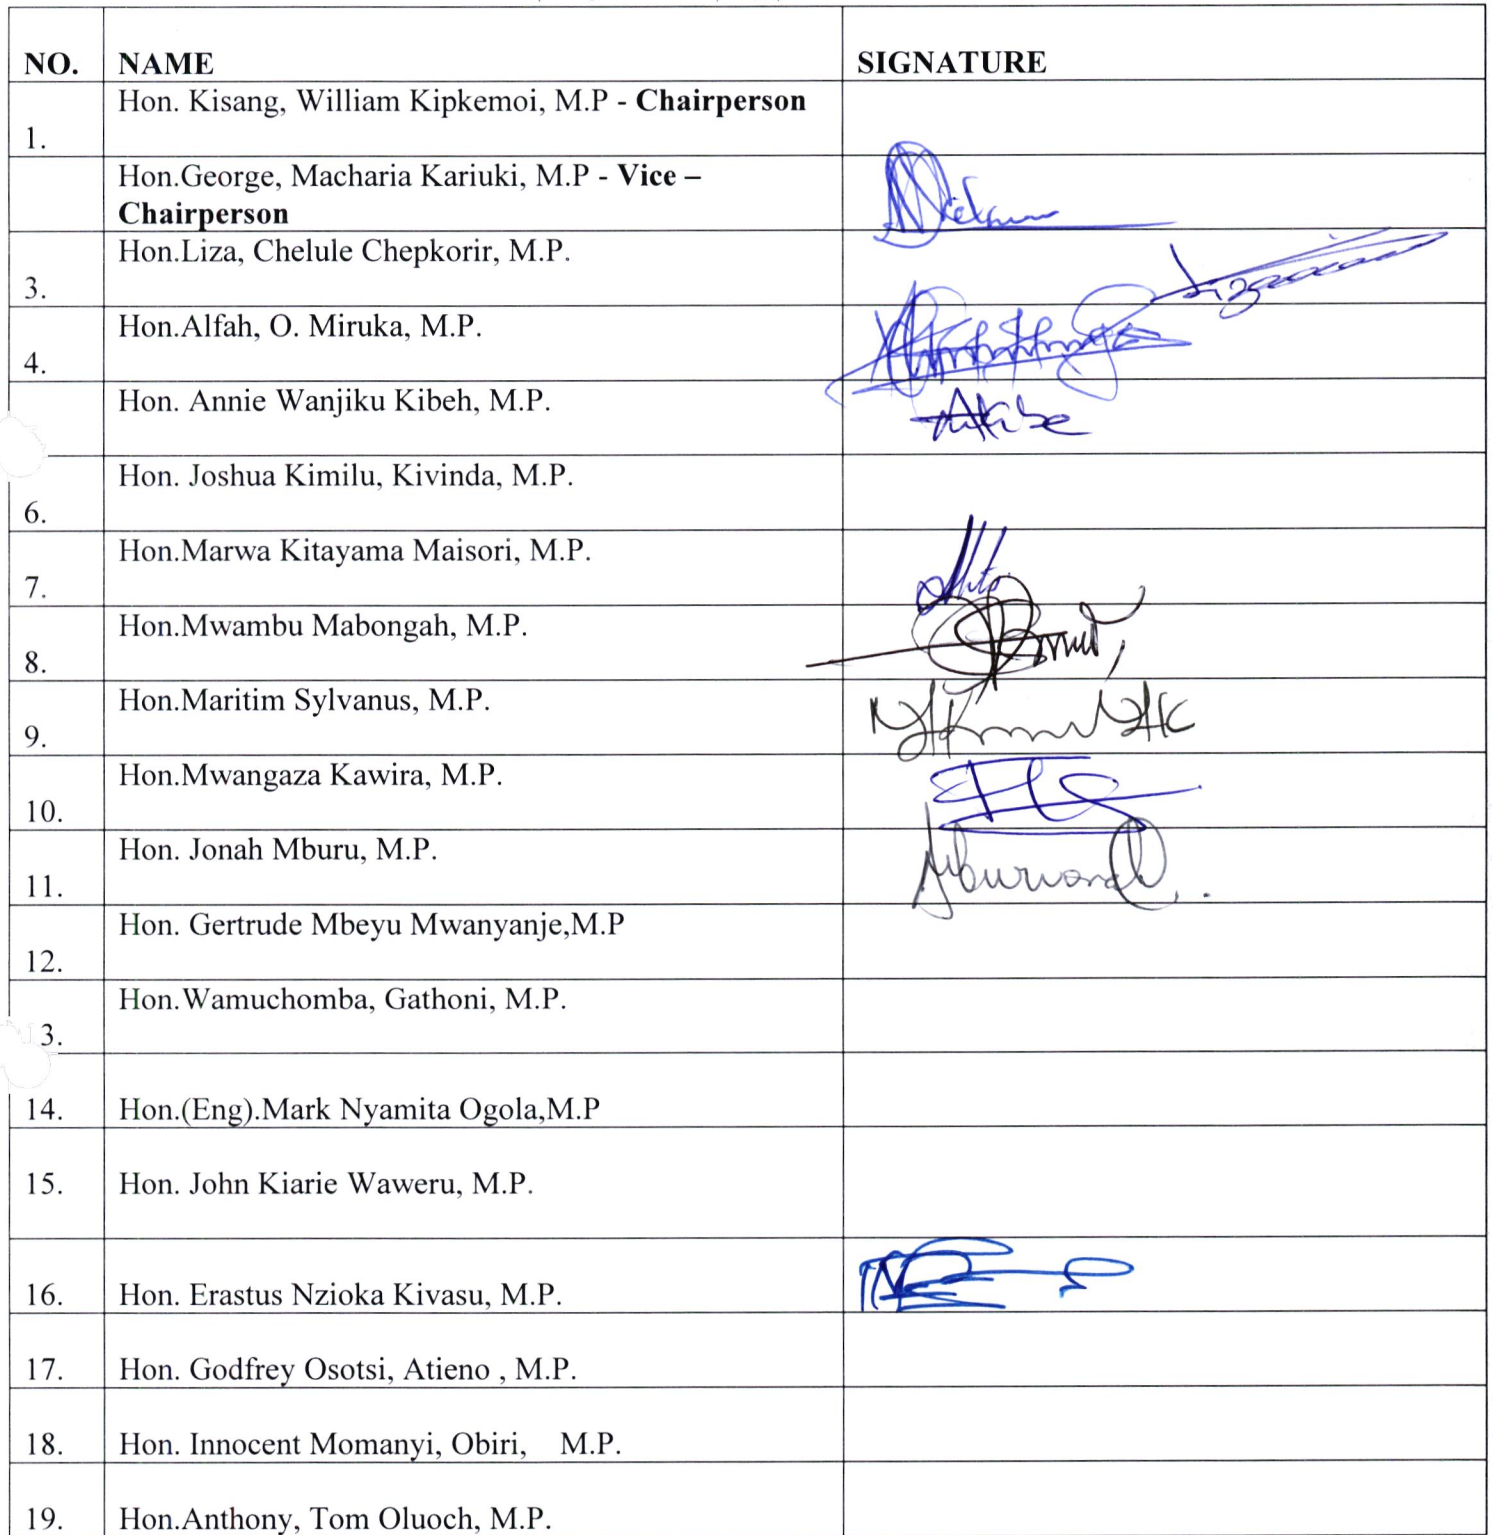 NO. NAME SIGNATURE
Hon. Kisang, William Kipkemoi, M.P - Chairperson
1.
Hon.George, Macharia Kariuki, M.P - Vice –
Chairperson
Hon.Liza, Chelule Chepkorir, M.P.
3.
Hon.Alfah, O. Miruka, M.P.
4.
Hon. Annie Wanjiku Kibeh, M.P.
Hon. Joshua Kimilu, Kivinda, M.P.
6.
Hon.Marwa Kitayama Maisori, M.P.
7.
Hon.Mwambu Mabongah, M.P.
8.
Hon.Maritim Sylvanus, M.P.
9.
Hon.Mwangaza Kawira, M.P.
10.
Hon. Jonah Mburu, M.P.
11.
Hon. Gertrude Mbeyu Mwanyanje,M.P
12.
Hon.Wamuchomba, Gathoni, M.P.
3.
14. Hon.(Eng).Mark Nyamita Ogola,M.P
15. Hon. John Kiarie Waweru, M.P.
16. Hon. Erastus Nzioka Kivasu, M.P.
17. Hon. Godfrey Osotsi, Atieno , M.P.
18. Hon. Innocent Momanyi, Obiri, M.P.
19. Hon.Anthony, Tom Oluoch, M.P.